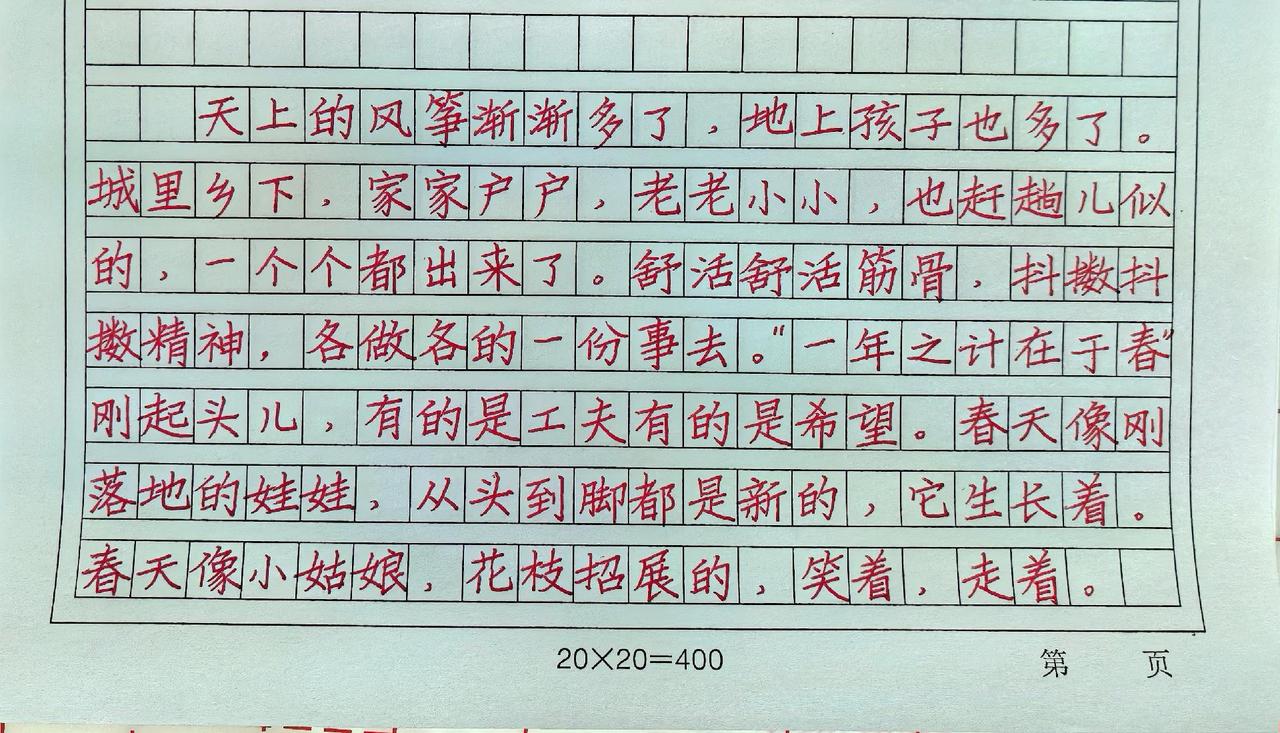 天上的风筝渐渐多了，地上孩子也多了。
城里乡下，家家户户，老老小小，也赶趟儿似
的，一个个都出来了。舒活舒活筋骨，抖擞抖
擞精神，各做各的一份事去。“一年之计在于春”
刚起头儿，有的是工夫有的是希望。春天像刚
落地的娃娃，从头到脚都是新的，它生长着。
春天像小姑娘，花枝招展的，笑着，走着。
20×20=400
第 页